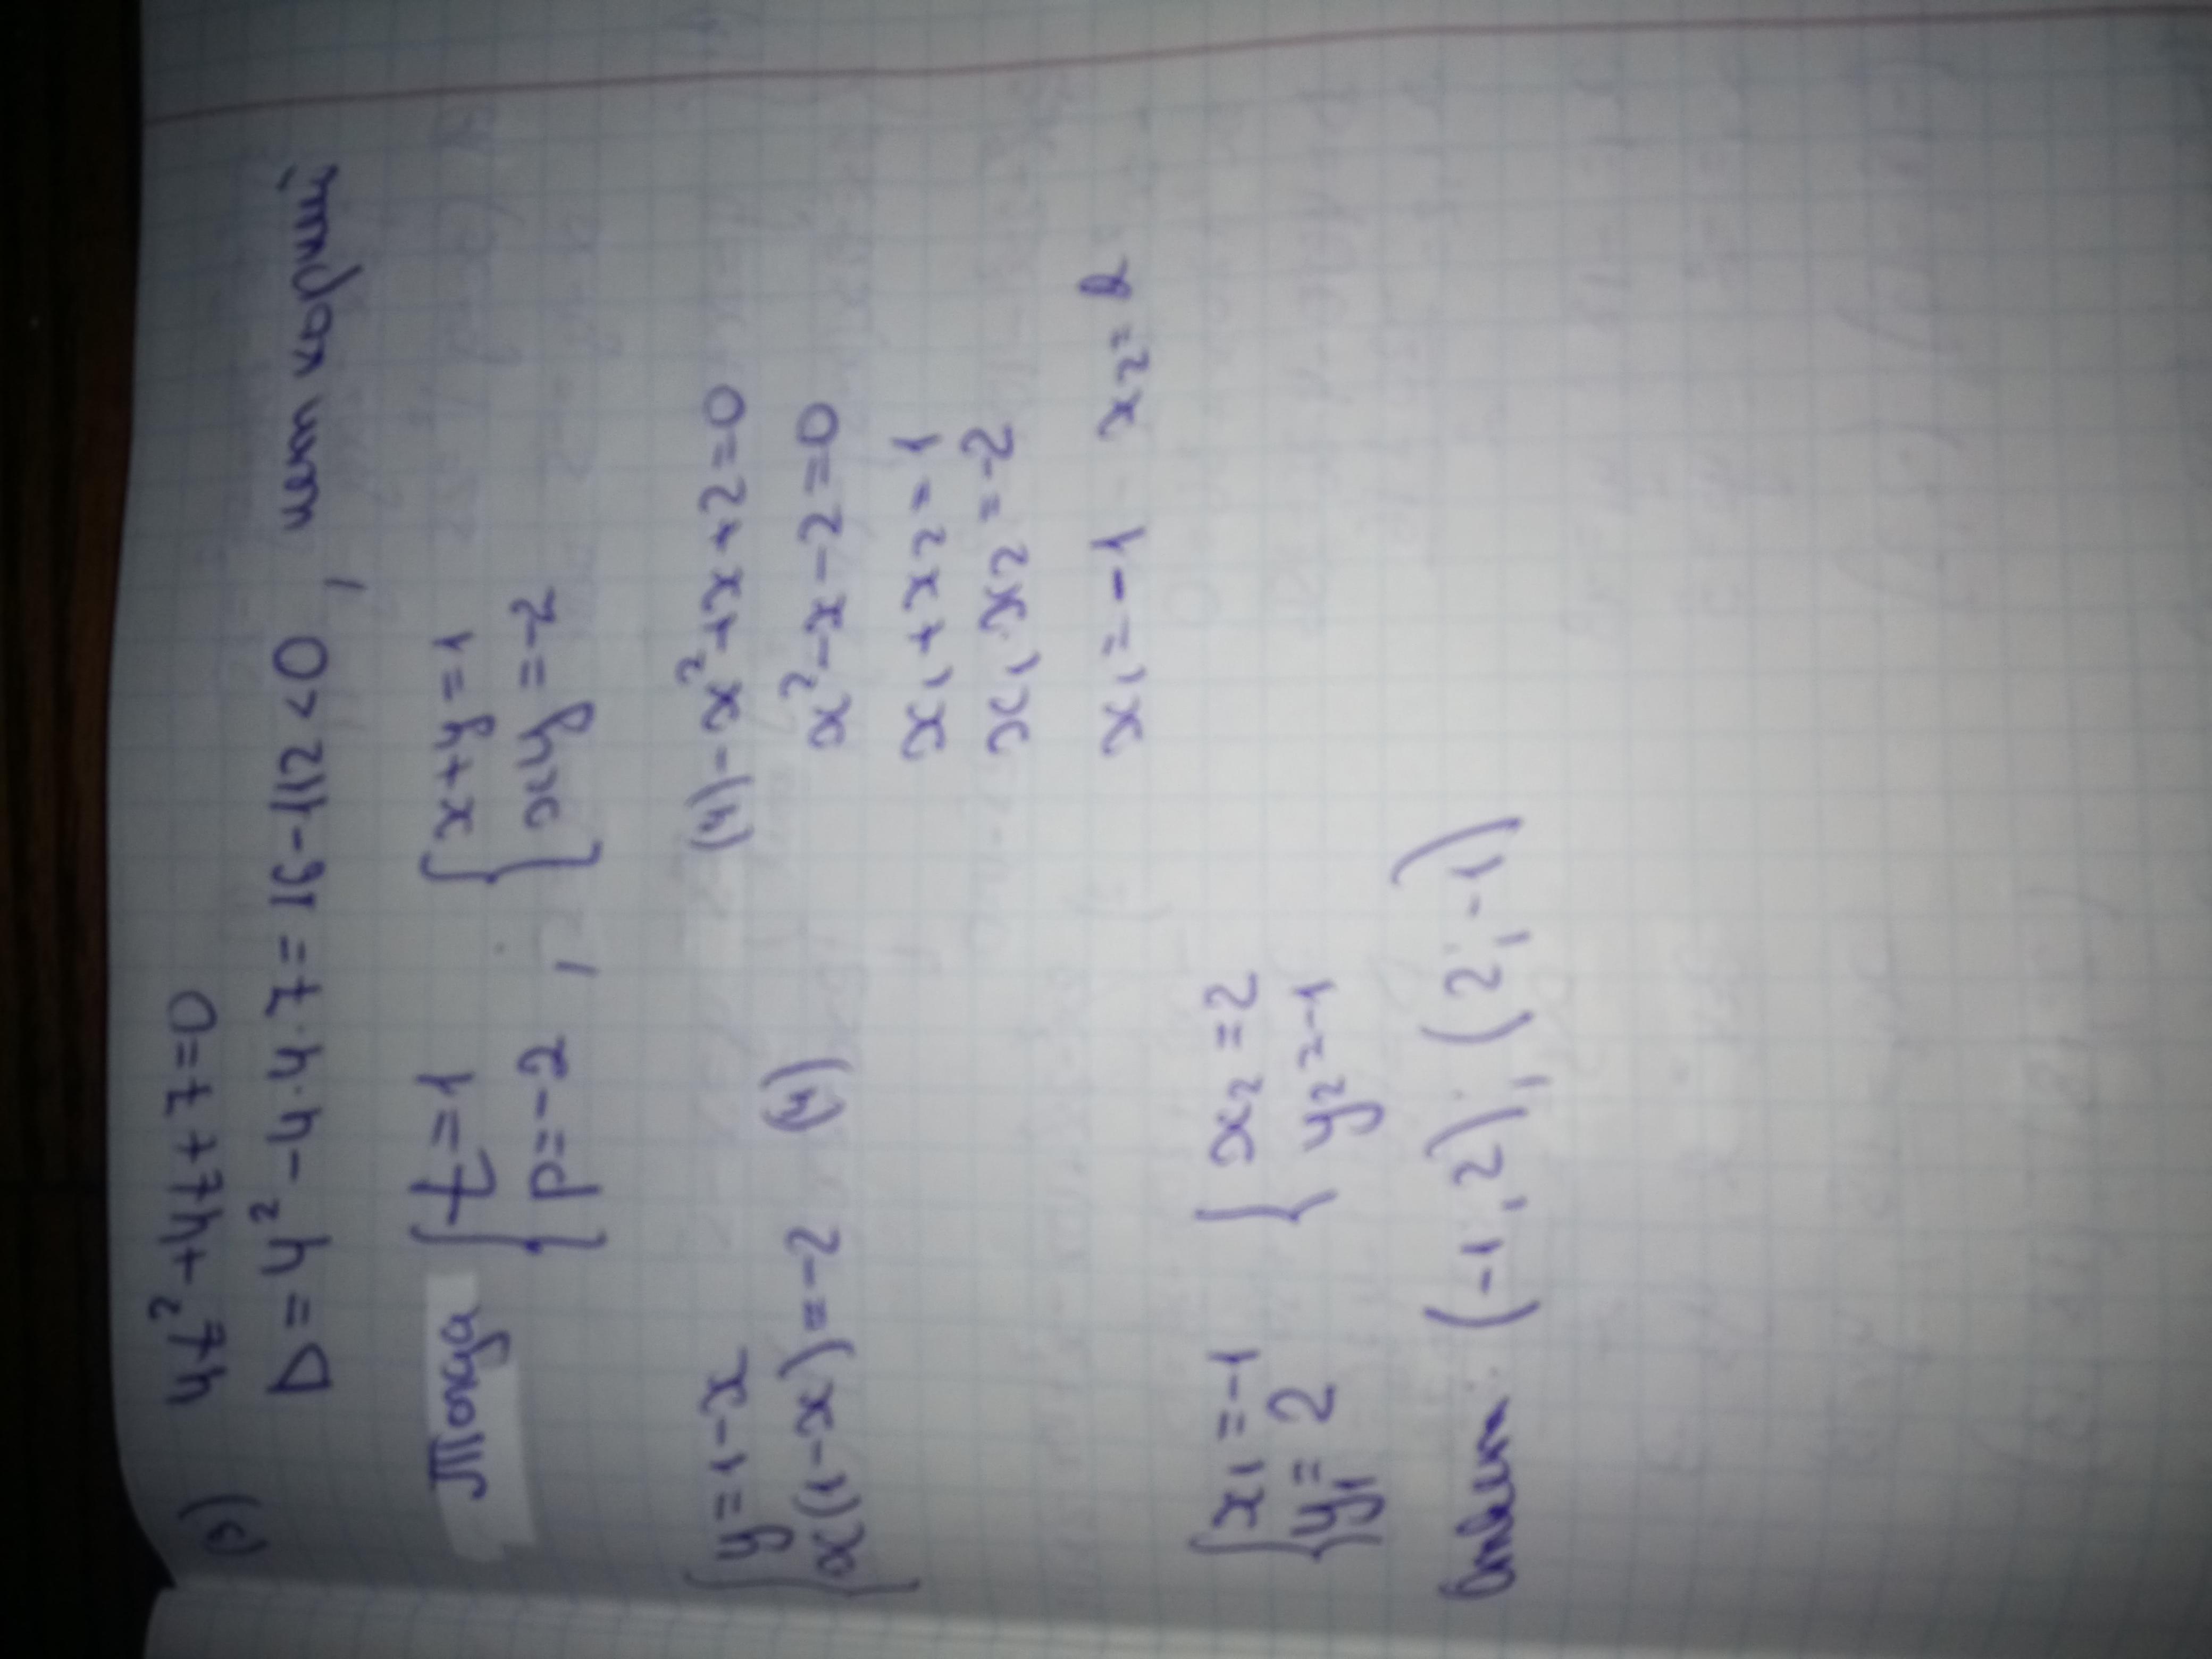 (3) 4t² + 4t + 7 = 0
D = 4² - 4·4·7 = 16 - 112 < 0, нет корней
Тогда { t = 1 p = -2 , { x + y = 1 xy = -2
{ y = 1 - x x(1 - x) = -2 (4)
(4) - x² + x + 2 = 0
x² - x - 2 = 0
x₁ + x₂ = 1
x₁ · x₂ = -2
x₁ = -1 x₂ = 2
{ x₁ = -1 y₁ = 2 { x₂ = 2 y₂ = -1
Ответ: (-1; 2), (2; -1)